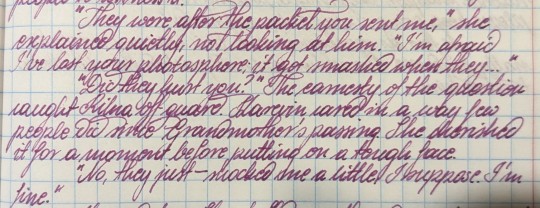 "They were after the packet you sent me," she
explained quietly, not looking at him. "I'm afraid
I've lost your photosphere; it got smashed when they..."
"Did they hurt you?" The earnesty of the question
caught Kilna off guard. Harvin cared in a way few
people did since Grandmother's passing. She cherished
it for a moment before putting on a tough face.
"No, they just — shocked me a little, I suppose. I'm
fine."